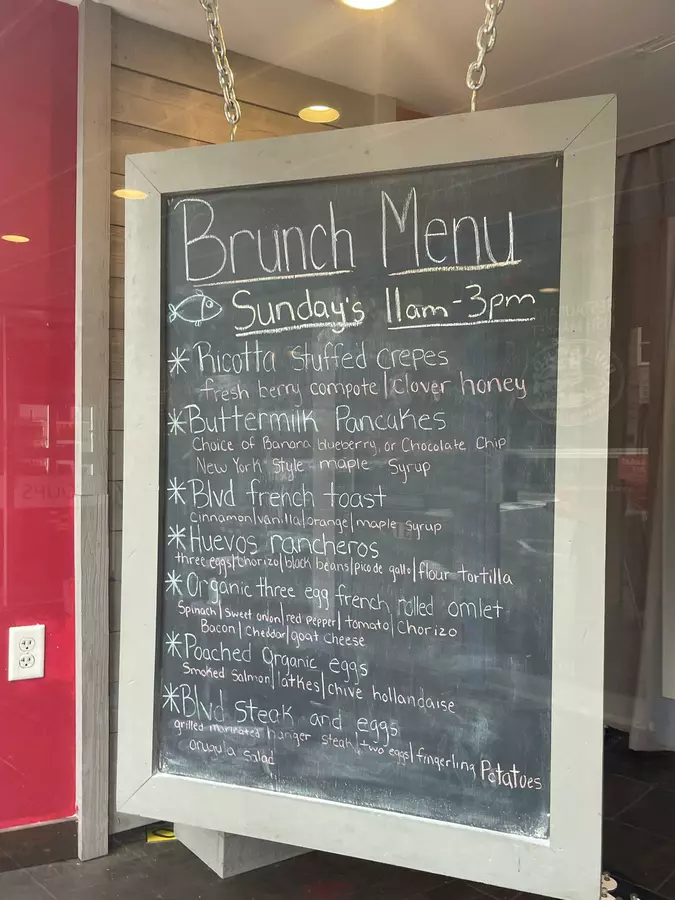 Brunch Menu
Sunday's 11am-3pm
* Ricotta stuffed crepes
fresh berry compote | clover honey
* Buttermilk Pancakes
Choice of Banana, blueberry, or Chocolate Chip
New York Style maple Syrup
* Blvd french toast
cinnamon | vanilla | orange | maple syrup
* Huevos rancheros
three eggs | chorizo | black beans | pico de gallo | flour tortilla
* Organic three egg french rolled omlet
Spinach | sweet onion | red pepper | tomato | chorizo
Bacon | cheddar | goat cheese
* Poached Organic eggs
Smoked Salmon | latkes | chive hollandaise
* Blvd steak and eggs
grilled marinated hanger steak, two eggs | fingerling Potatoes
arugula salad